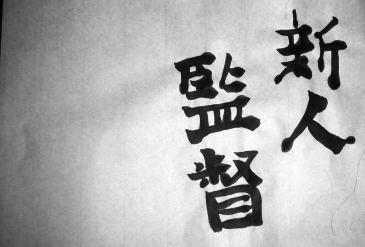 新人
監督